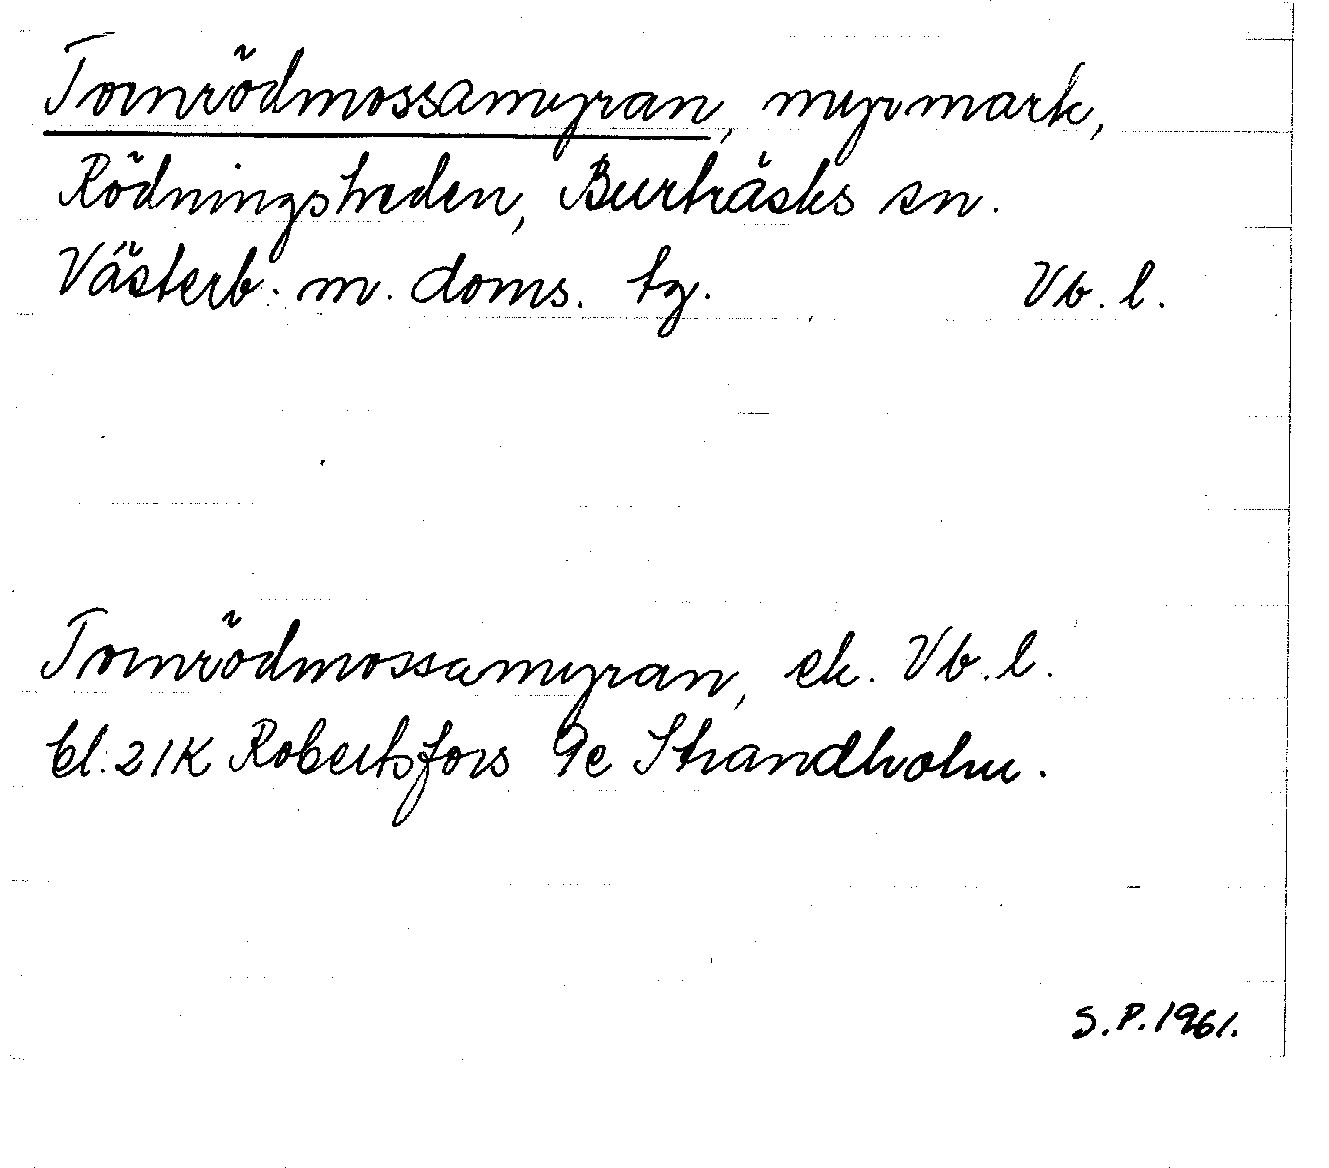 Tornrödmossamyran, myrmark,
Rödningsheden, Burträsks sn.
Västerb. m. doms. tg. Vb. l.
Tornrödmossamyran, ek. Vb. l.
bl. 21K Robertsfors 9e Strandholm.
S.P. 1961.